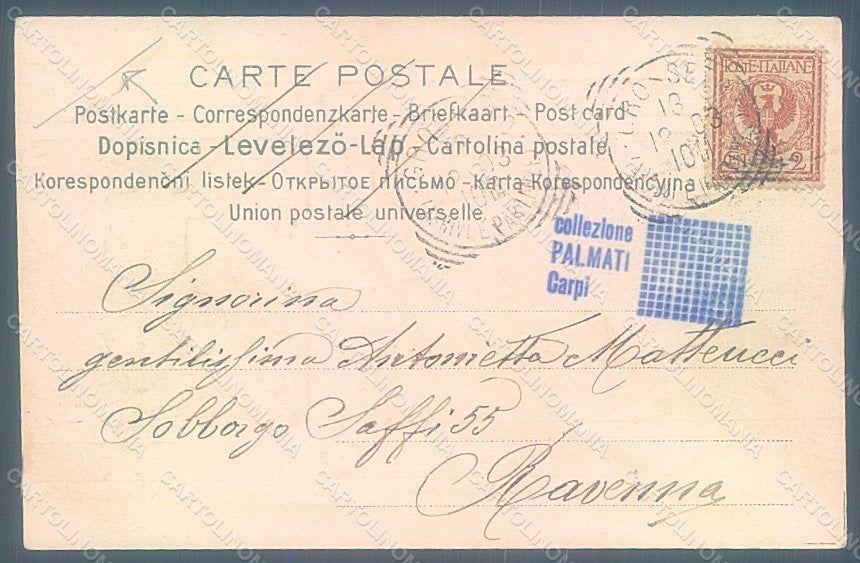 CARTE POSTALE
Postkarte - Correspondenzkarte - Briefkaart - Post card
Dopisnica - Levelezö-Lap - Cartolina postale
Korespondenčni listek - Открытое письмо - Karta Korespondencyjna
Union postale universelle.
POSTE·ITALIANE
2
collezione
PALMATI
Carpi
Signorina
gentilissima Antonietta Matteucci
Sobborgo Saffi 55
Ravenna
CARTOLINOMANIA